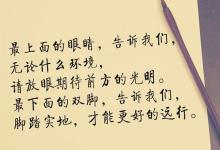 最上面的眼睛，告诉我们，
无论什么环境，
请放眼期待前方的光明。
最下面的双脚，告诉我们，
脚踏实地，才能更好的远行。